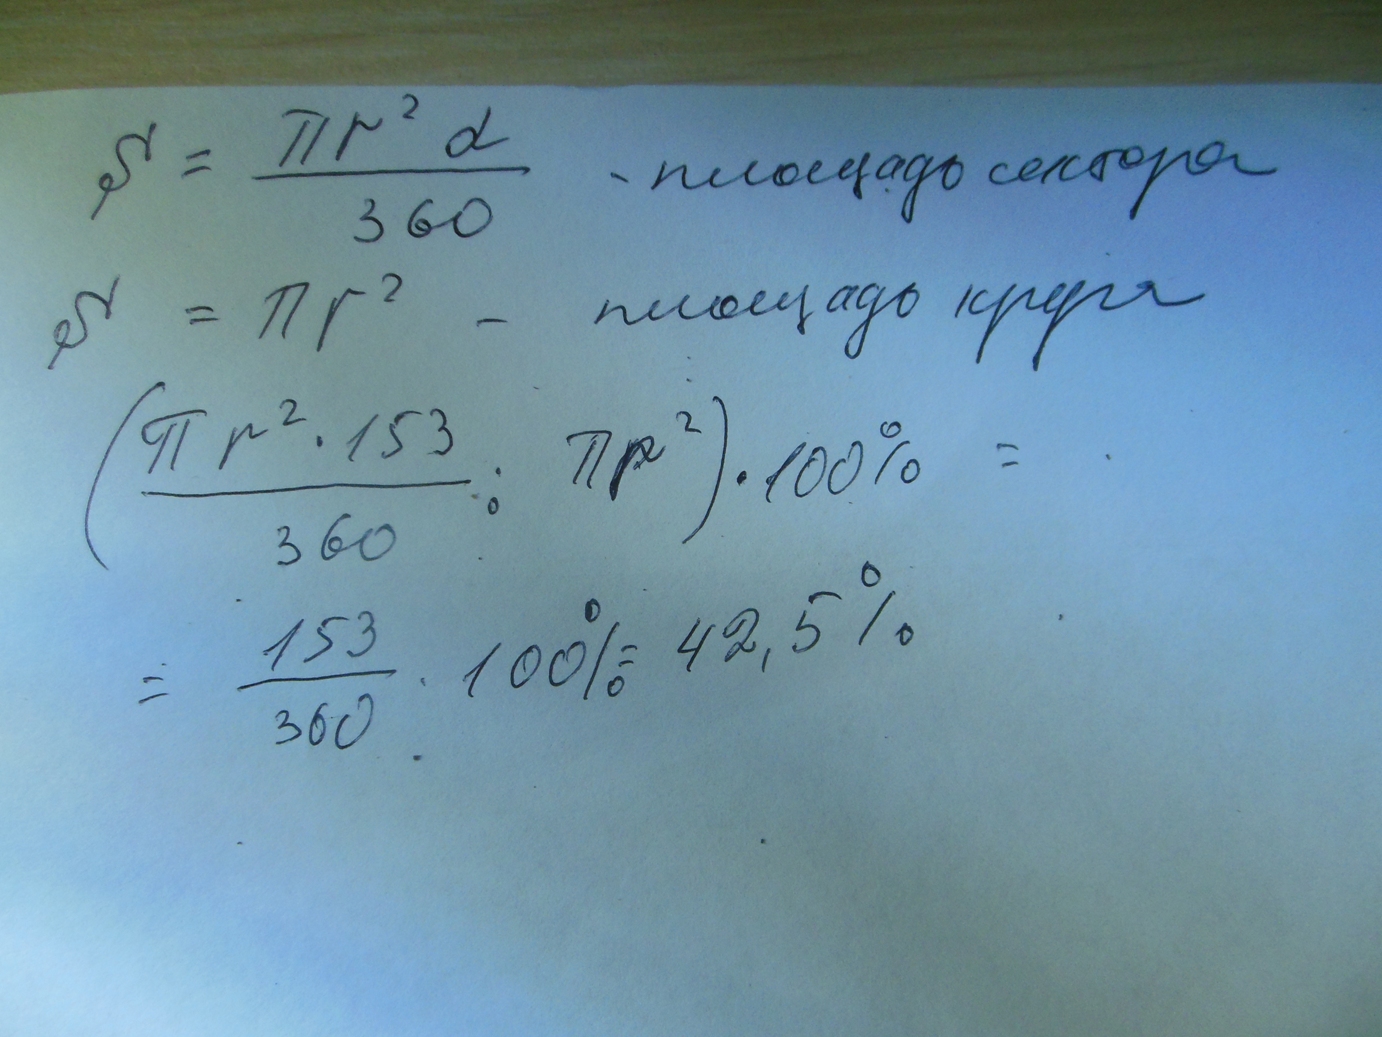 S = πr² α / 360 - площадь сектора
S = πr² - площадь круга
(πr² · 153 / 360 : πr²) · 100% =
= 153 / 360 · 100% = 42,5%